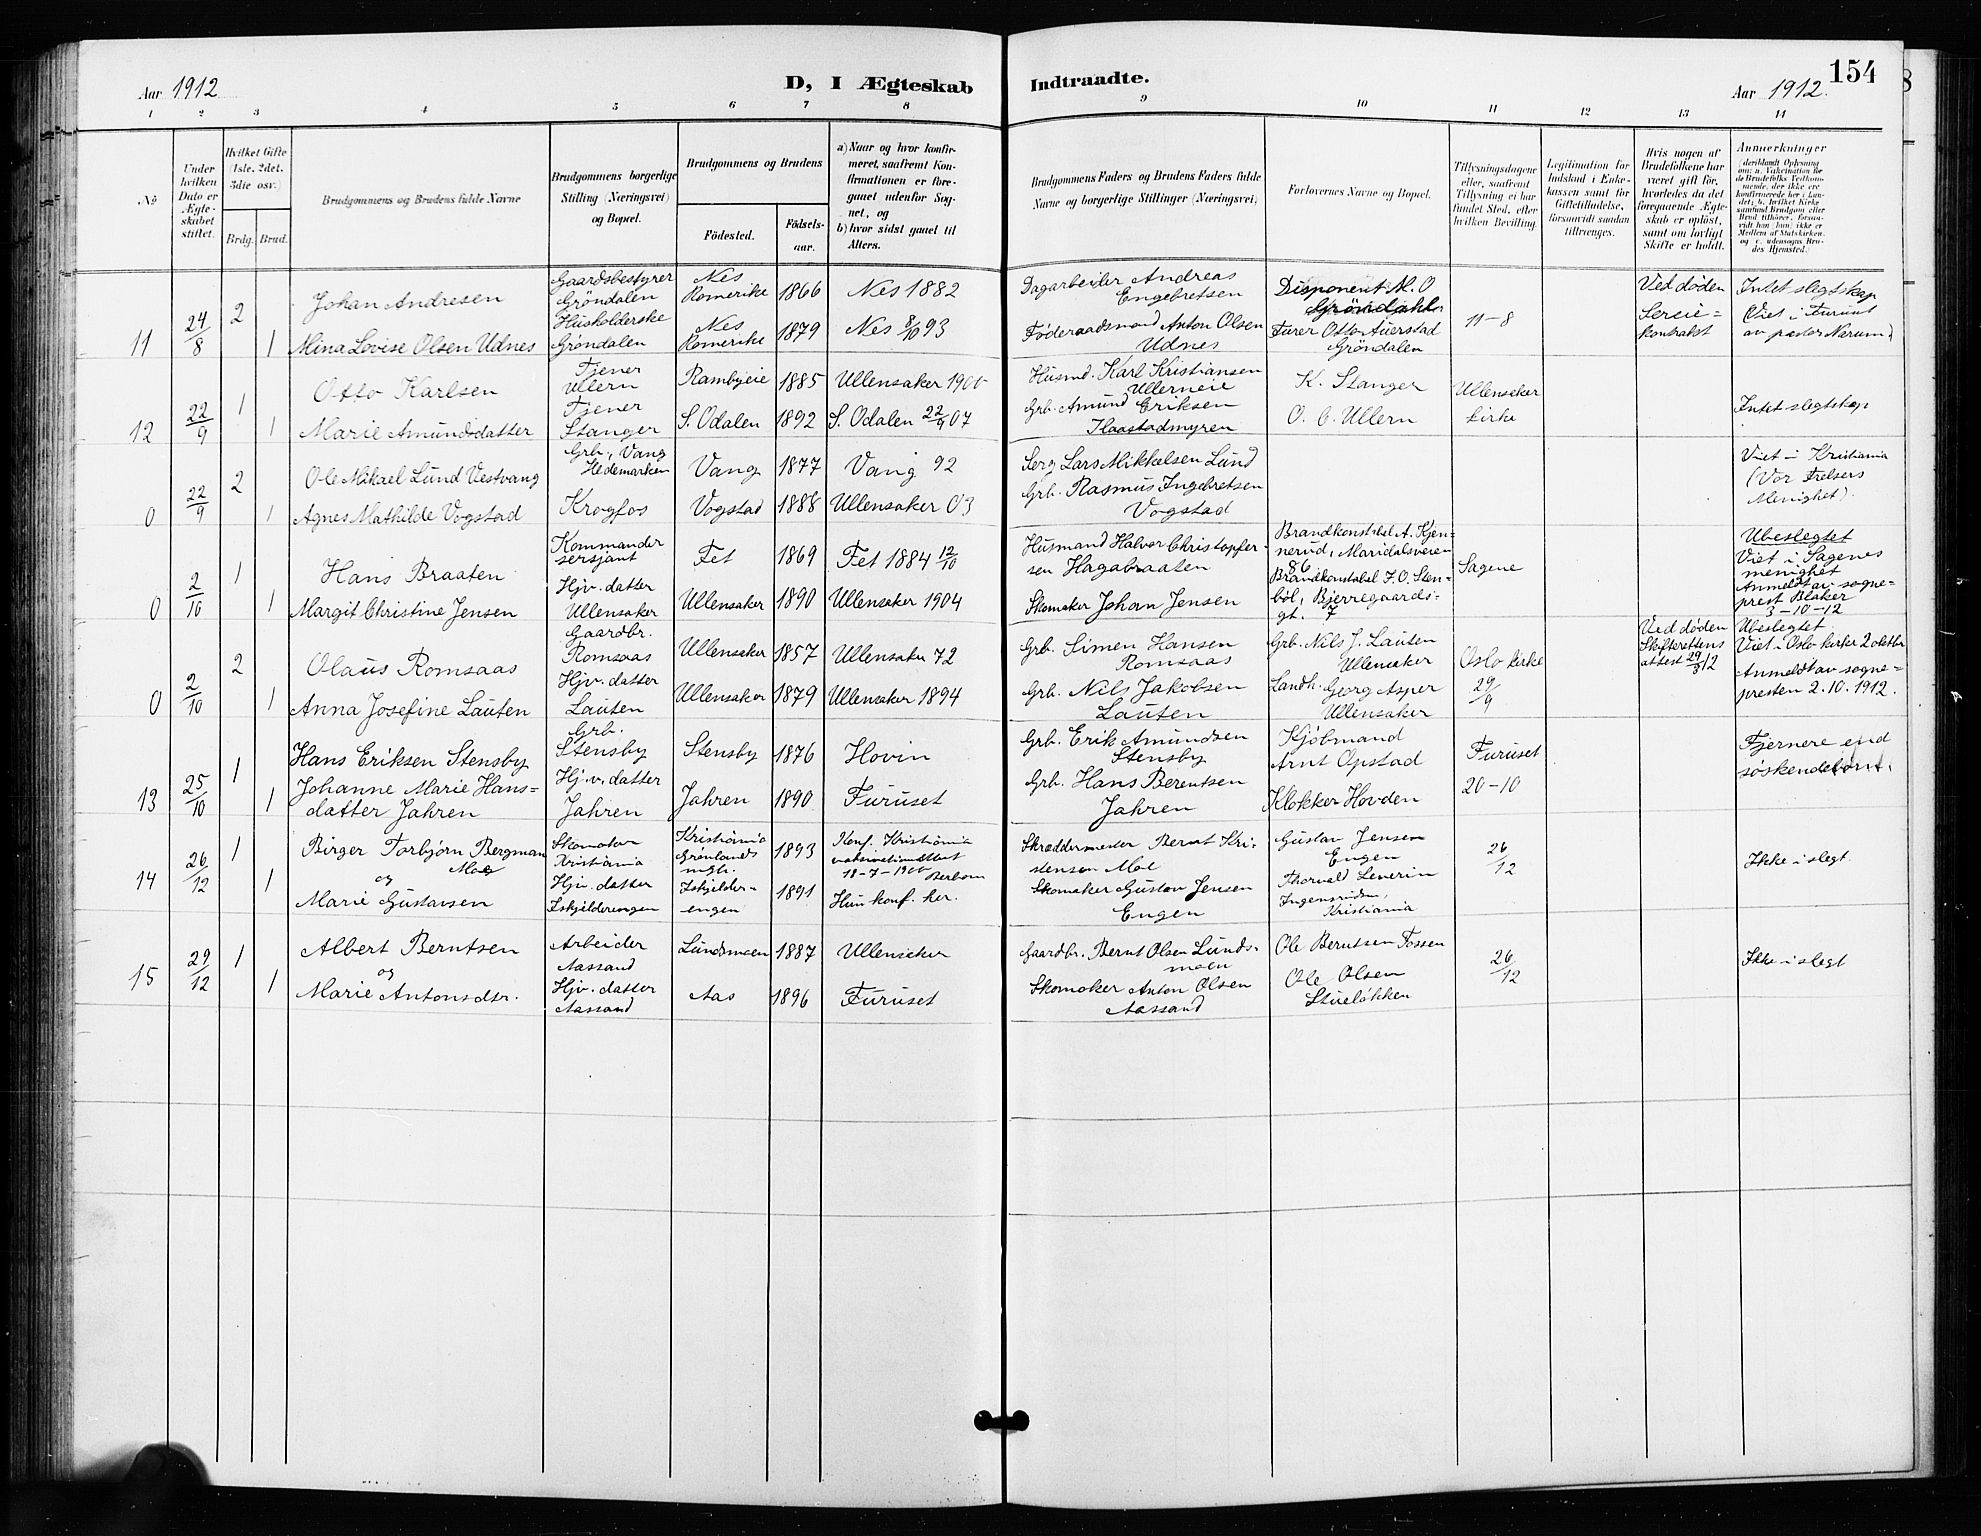 154
Aar 1912
D, I Ægteskab
Indtraadte.
Aar 1912.
1 2 3 4 5 6 7 8
9 10 11 12 13 14
No
Under hvilken Dato er Ægteskabet stiftet.
Hvilket Gifte (1ste, 2det, 3die osv.)
Brdg. Brud.
Brudgommens og Brudens fulde Navne
Brudgommens borgerlige Stilling (Næringsvei) og Bopæl.
Brudgommens og Brudens
Födested.
Födselsaar.
a) Naar og hvor konfirmeret, saafremt Konfirmationen er foregaaet udenfor Sognet, og
b) hvor sidst gaaet til Alters.
Brudgommens Faders og Brudens Faders fulde Navne og borgerlige Stillinger (Næringsvei)
Forlovernes Navne og Bopæl.
Tillysningsdagene eller, saafremt Tillysning ei har fundet Sted, efter hvilken Bevilling.
Legitimation for Indskud i Enkekassen samt for Giftetilladelse, forsaavidt saadan tiltrænges.
Hvis nogen af Brudefolkene har været gift för, hvorledes da det foregaaende Ægteskab er oplöst, samt om lovligt Skifte er holdt.
Anmærkninger
11 24/8 2 Johan Andresen
Gaardsbestyrer Gröndalen
Nes Romerike 1866 Nes 1882
Dagarbeider Andreas Engebretsen
Disponent M. O Gröndahl
11-8
Ved døden Sereiekontrakt
Intet slegtskap Viet i Furuset av pastor Nerum.
1 Mina Lovise Olsen Udnes
Husholderske Gröndalen
Nes Romerike 1879 Nes 8/10 93
Föderaadsmand Anton Olsen Udnes
Furer Otto Auerstad Gröndalen
12 22/9 1 Otto Karlsen
Tjener Ullern
Rambyeie 1885 Ullensaker 1900
Husmd. Karl Kristiansen Ullerneie
K. Stanger
Ullensaker kirke
Intet slegtskap
1 Marie Amundsdatter
Tjener Stanger
S. Odalen 1892 S. Odalen 22/9 07
Grb. Amund Eriksen Haastadmyren
O. C. Ullern
0 22/9 2 Ole Mikael Lund Vestvang
Grb, Vang Hedemarken
Vang 1877 Vang 92
Serg Lars Mikkelsen Lund
Viet i Kristiania (Vor Frelsers Menighet).
1 Agnes Mathilde Vogstad
Krogfos
Vogstad 1888 Ullensaker 03
Grb. Rasmus Ingebretsen Vogstad
0 2/10 1 Hans Braaten
Kommandersersjant
Fet 1869 Fet 1884 12/10
Husmand Halvor Christopfersen Hagabraaten
Brandkonstabel A. Kjennerud, Maridalsveien 86
Sagene
Ubeslegtet
Viet i Sagenes menighet
Anmeldt av sogneprest Blaker 3-10-12
1 Margit Christine Jensen
Hjv. datter Ullensaker
Ullensaker 1890 Ullensaker 1904
Skomaker Johan Jensen
Brandkonstabel J. O. Stenböl, Bjerregaardsgt. 7
0 2/10 2 Olaus Romsaas
Gaardbr. Romsaas
Ullensaker 1857 Ullensaker 72
Grb. Simen Hansen Romsaas
Grb. Nils J. Lauten Ullensaker
Oslo kirke 29/9
Ved døden Skifterettens attest 29/3 12
Ubeslegtet
Viet i Oslo kirke 2 oktbr
Anmeldt av sognepresten 2.10.1912.
1 Anna Josefine Lauten
Hjv. datter Lauten
Ullensaker 1879 Ullensaker 1894
Grb. Nils Jakobsen Lauten
Landh. Georg Asper Ullensaker
13 25/10 1 Hans Eriksen Stensby
Grb. Stensby
Stensby 1876 Hovin
Grb. Erik Amundsen Stensby
Kjöbmand Arnt Opstad
Furuset 20-10
Fjernere end søskendebørn.
1 Johanne Marie Hansdatter Jahren
Hj.v. datter Jahren
Jahren 1890 Furuset
Grb. Hans Berentsen Jahren
Klokker Hovden
14 26/12 1 Birger Torbjørn Bergman Moe
og
Skomaker Kristiania
Kristiania Grønlands mgh. 1893
Konf. Kristiania vaksinationsattest 18-7-1900
Skræddermester Bernt Kristensen Moe
Gustav Jensen Engen
26/12
Ikke i slegt.
1 Marie Gustavsen
Hjv. datter Eskjelderengen
Eskjelderengen 1891 Hun konf. her.
Skomaker Gustav Jensen Engen
Thorvald Severin Ingensruden, Kristiania
15 29/12 1 Albert Berntsen
og
Arbeider Aassand
Lundsmoen 1887 Ullensaker
Gaardbr. Bernt Olsen Lundsmoen
Ole Berntsen Fossen
26/12
Ikke i slegt
1 Marie Antonsdtr.
Hjv. datter Aassand
Aas 1896 Furuset
Skomaker Anton Olsen Aassand
Ole Olsen Stueløkken